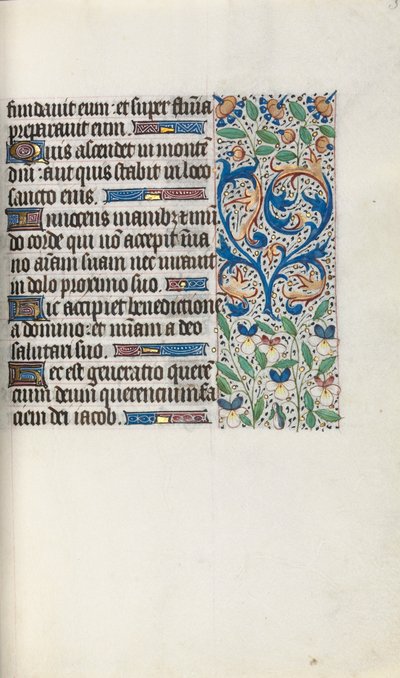 fundavit eum: et super flu̅i̅a
preparavit eum.
Quis ascendet in monte̅
dn̅i: aut quis stabit in loco
sancto eius.
Innocens manib⁊ ⁊ mu̅
do corde qui no̅ accepit i̅ va
no a̅i̅a̅m suam nec iuravit
in dolo proximo suo.
Hic accipiet benedictione̅
a domino: et mi̅a̅m a deo
salutari suo.
Hec est generatio quere̅
cium deum querencium fa
ciem dei iacob.